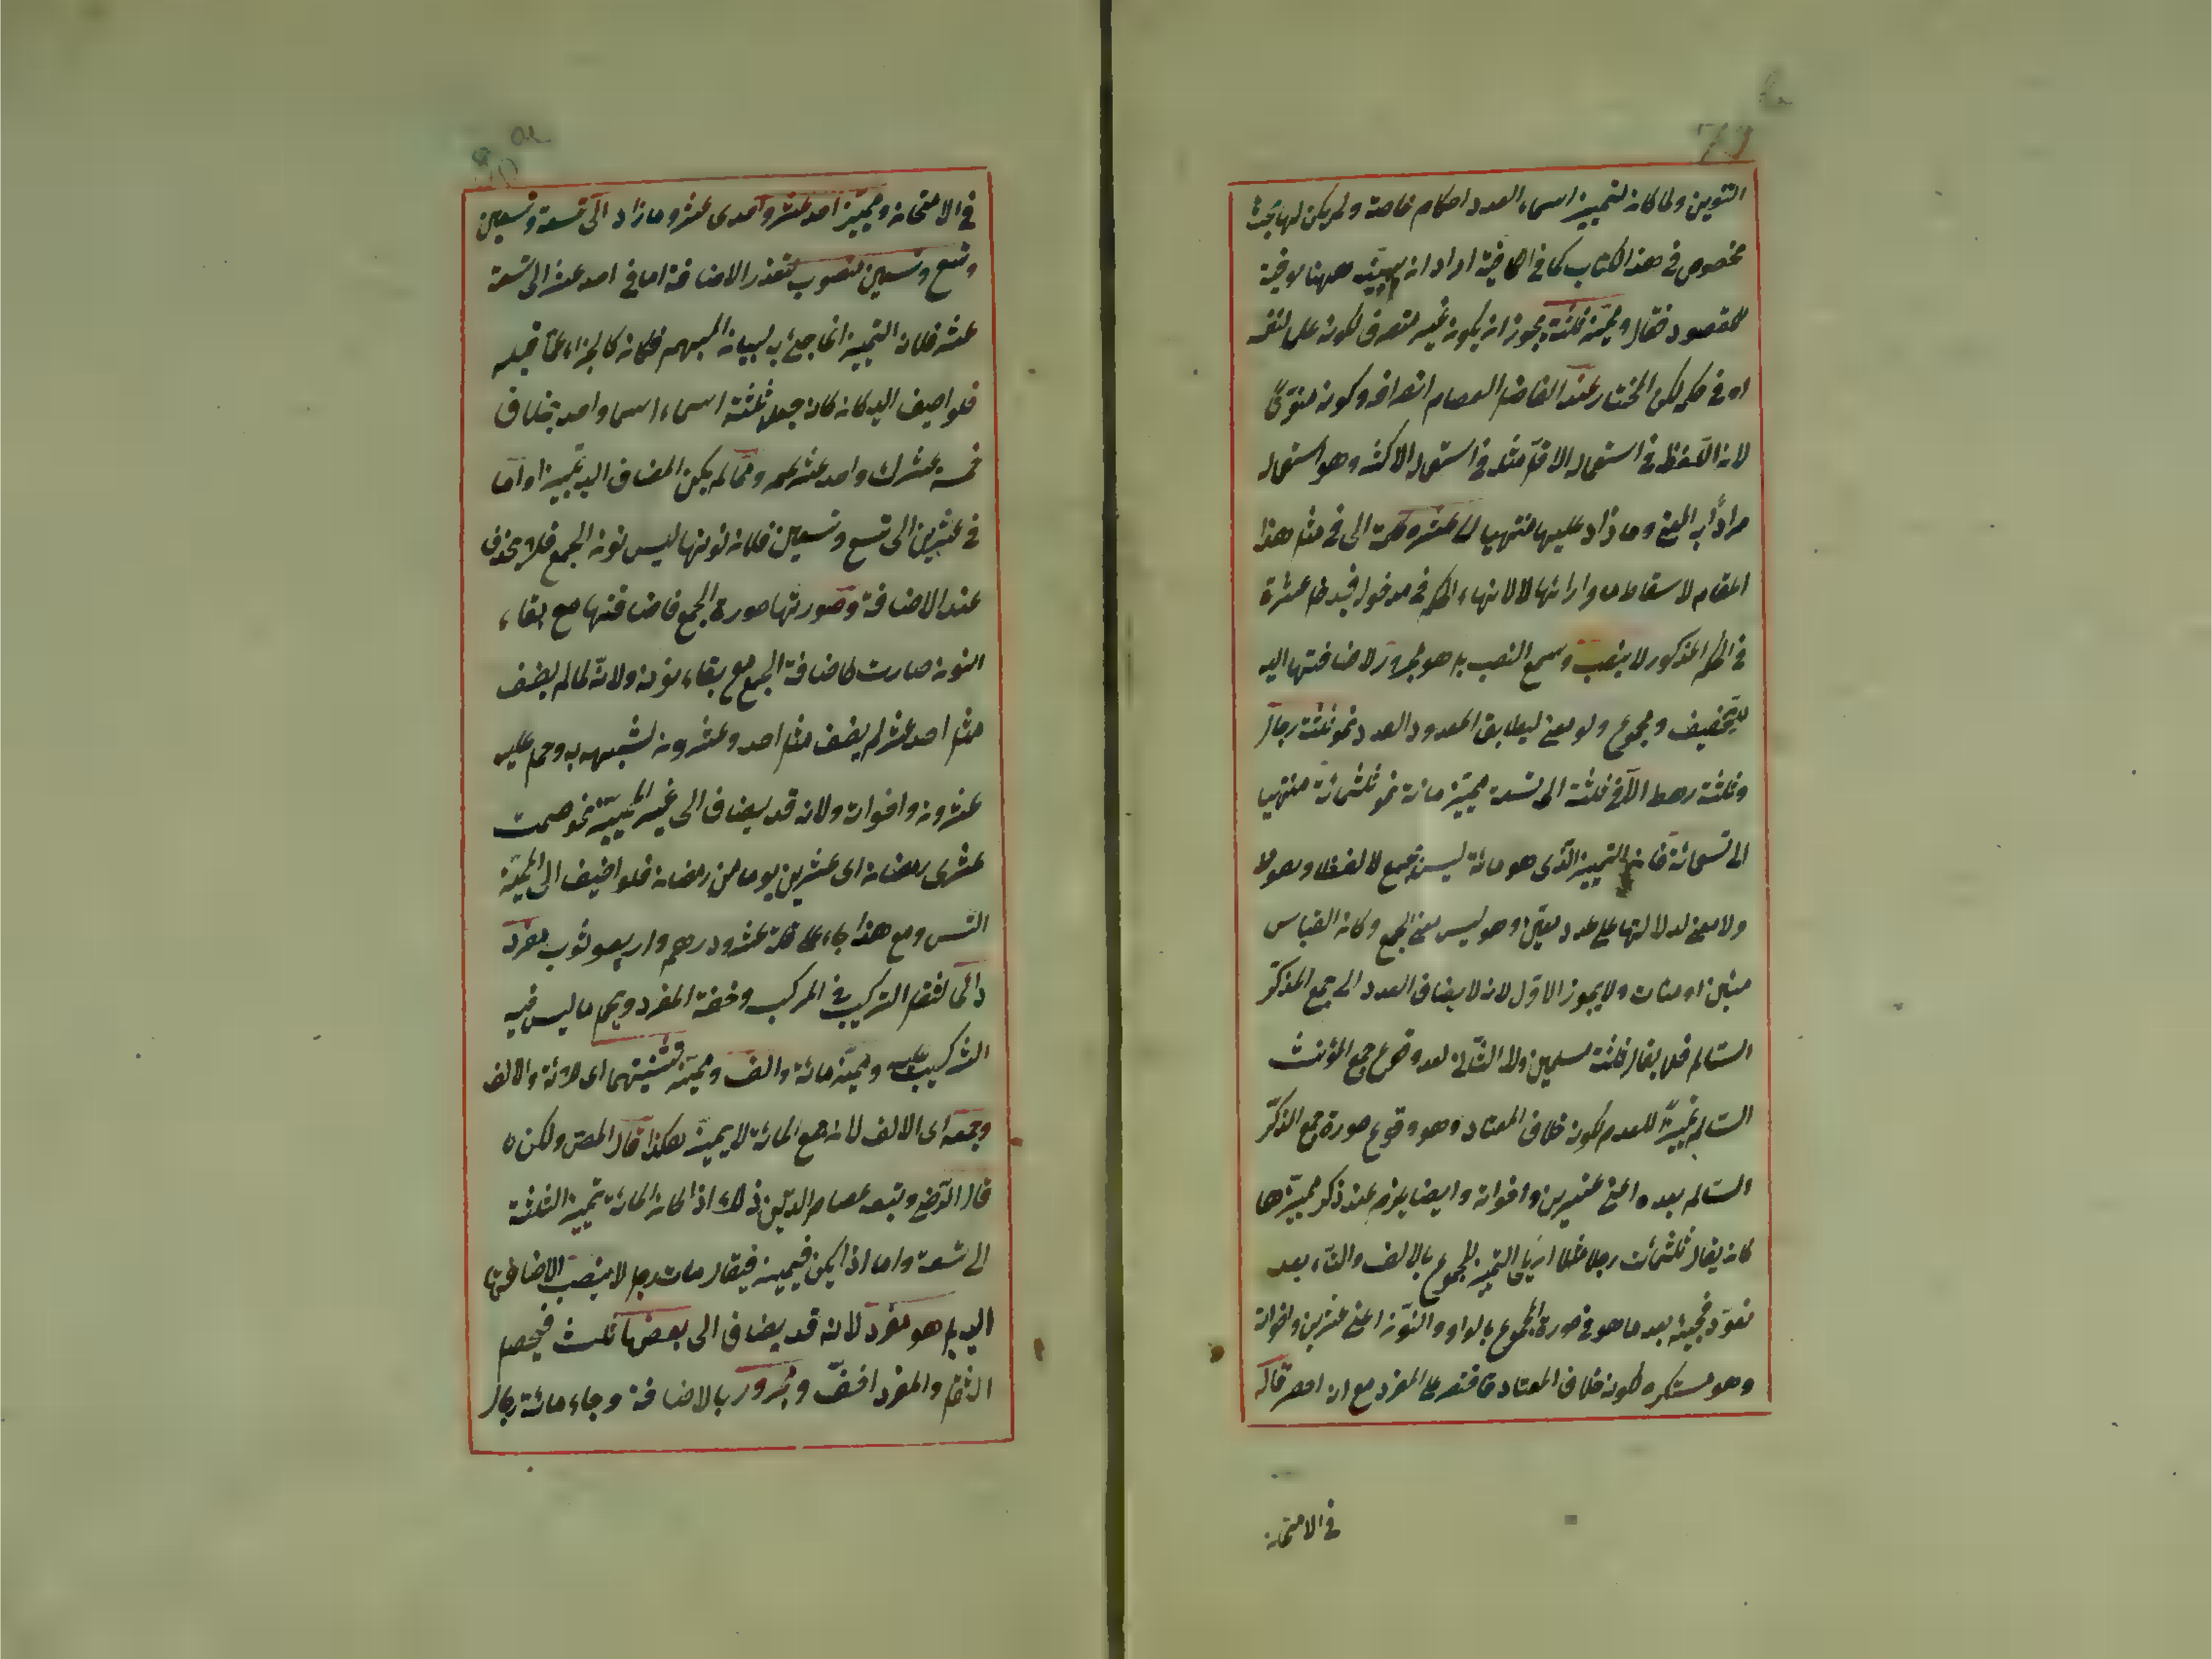 التنوين ولما كان لتمييز اسماء العدد احكام خاصة ولم يكن لها بحث
مخصوص في هذا الكتاب كما في الكافية اراد ان يبينه ههنا توفية
للمقصود فقال ومميز ثلثة يجوز ان يكون غير منصرف لكونه على لنفسه
او في حكمه لكن المختار عند الفاضل العصام انصرافه وكونه منونا
لان اللفظ في استعماله الاقل مثله في استعماله الاكثر وهو استعماله
مرادا به المعنى وما زاد عليها منتهيا الى عشرة كلمة الى في مثل هذا
المقام لاسقاط ما وراءها لا لانهاء الحكم في مدخولها فيدخل عشرة
في الحكم المذكور لا ينصب وسمع النصب بل هو مجرور لاضافتها اليه
للتخفيف ومجموع ولو معنى ليطابق المعدود العدد نحو ثلثة رجال
وثلثة رهط الا في ثلثة الى تسعة مميز مائة نحو ثلثمائة منتهيا
الى تسعمائة فان التمييز الذى هو مائة ليس بجمع لا لفظا وهو ظ
ولا معنى لدلالتها على عدد معين وهو ليس معنى الجمع وكان القياس
مئين او مئات ولا يجوز الاول لانه لا يضاف العدد الى جمع المذكر
السالم فلا يقال ثلثة مسلمين ولا الثانى لعد وقوع جمع المؤنث
السالم تمييزا للعدم لكونه خلاف المعتاد وهو وقوع صورة جمع المذكر
السالم بعده اعنى عشرين واخواته وايضا يلزم عند ذكر مميزها
كان يقال ثلثمئات رجلا مثلا ان يلى التمييز المجموع بالالف والتاء بعد
تعود مجيئه بعد ما هو في صورة المجموع بالواو والنون اعنى عشرين واخواته
وهو مستكره لكونه خلاف المعتاد فاقتصر على المفرد مع انه اخصر قاله
في الامتحان
في الامتحان ومميز احد عشر واحدى عشر وما زاد الى تسعة وتسعين
وتسع وتسعين منصوب لتعذر الاضافة اما في احد عشر الى تسعة
عشر فلان التمييز انما جئ به لبيان المبهم فكانه كالجزء مما قبله
فلو اضيف اليه كان كانه جعل ثلثة اسماء اسما واحد بخلاف
خمسة عشرك واحد عشر عمرو مما لم يكن المضاف اليه تمييزا واما
في عشرين الى تسع وتسعين فلان نونها ليس نون الجمع فلا تحذف
عند الاضافة وصورتها صورة الجمع فاضافتها مع بقاء
النون صارت كاضافة الجمع مع بقاء نونه ولانه لما لم يضف
مثل احد عشر لم يضف مثل احد وعشرون لشبهه به وحمل عليه
عشرون واخواته ولانه قد يضاف الى غير المميز نحو صمت
عشرى رمضان اى عشرين يوما من رمضان فلو اضيف الى المميز
التبس ومع هذا جاء على قلة عشرو درهم واربعو ثوب مفرد
دائما لثقل التركيب في المركب وخفة المفرد وحمل ما ليس فيه
التركيب عليه ومميز مائة والف ومميز تثنيتهما اى المائة والالف
وجمعه اى الالف لان جمع المائة لا يميز هكذا قال المص ولكن
قال الرضى وتبعه عصام الدين ذلك اذا كان المائة تمييز الثلثة
الى تسعة واما اذا لم يكن فيميز فيقال مئات رجل لا ينصب لاضافتها
اليه بل هو مفرد لانه قد يضاف الى بعضها ثلث فيحصل
الثقل والمفرد اخف ومجرور بالاضافة وجاء مائة رجال